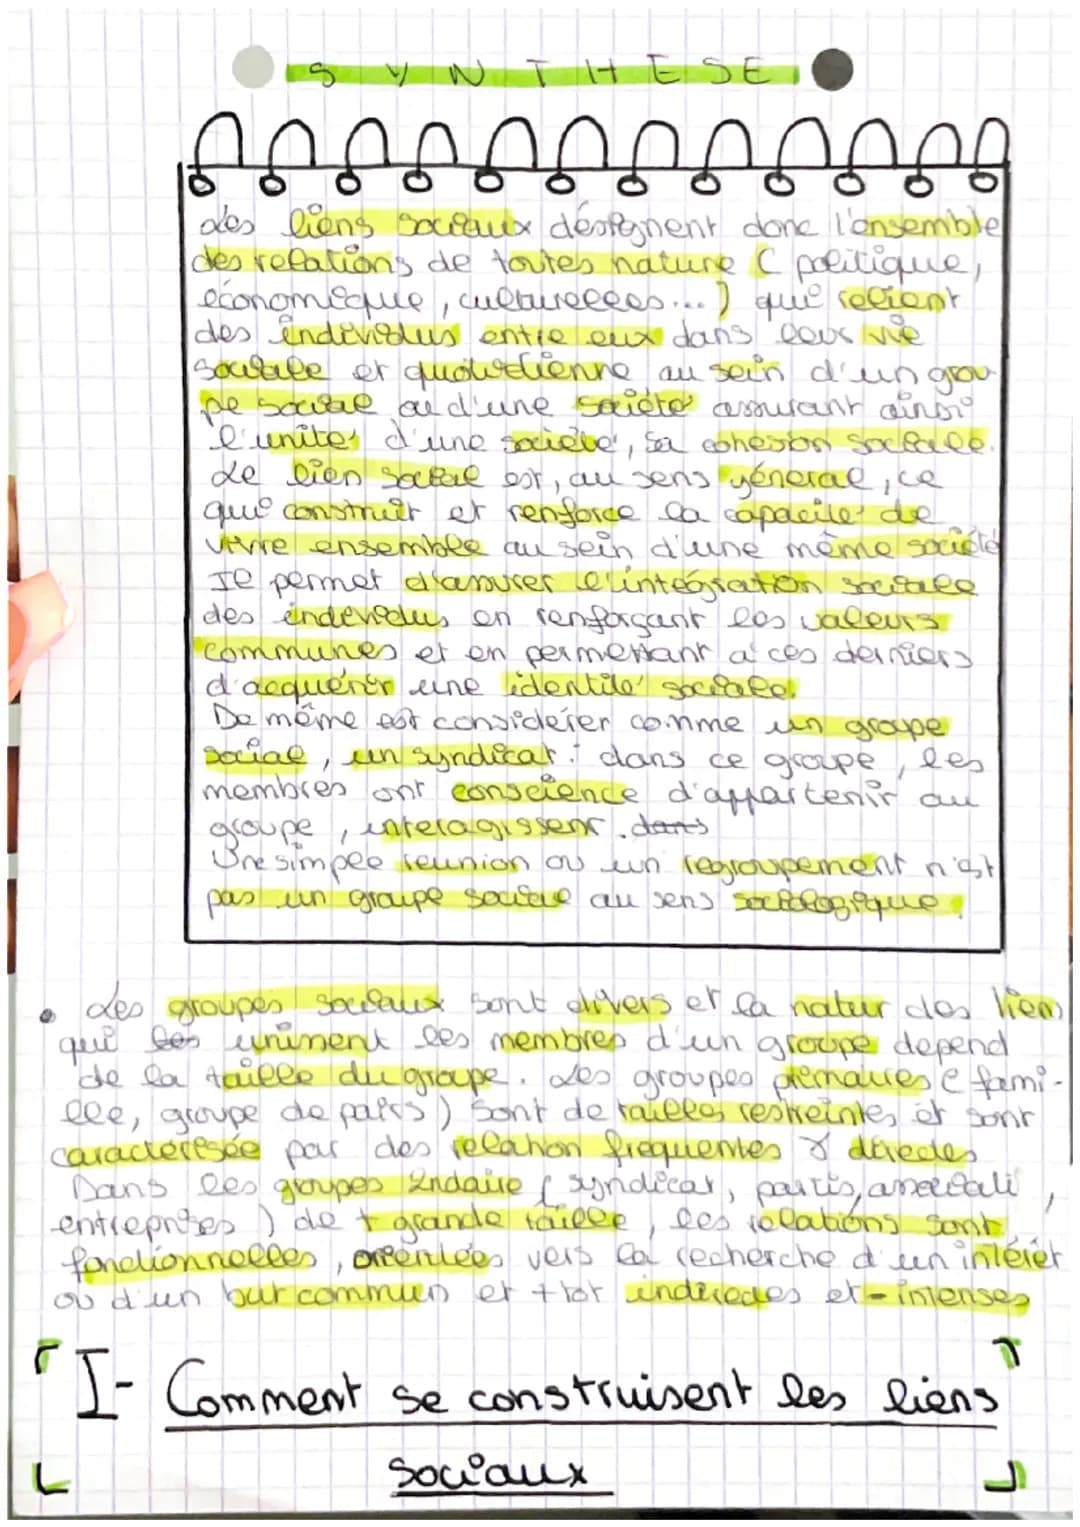 SYNTHESE
Les liens sociaux désignent donc l'ensemble
des relations de toutes nature ( politique,
économique, culturelles...) qui relient
des individus entre eux dans leur vie
sociale et quotidienne au sein d'un grou
pe social ou d'une société assurant ainsi
l'unité d'une société, sa cohésion sociale.
Le lien social est, au sens général, ce
qui construit et renforce la capacité de
vivre ensemble au sein d'une même société
Il permet d'assurer l'intégration sociale
des individus en renforçant les valeurs
communes et en permettant à ces derniers
d'acquérir une identité sociale.
De même est considérer comme un groupe
social, un syndicat : dans ce groupe, les
membres ont conscience d'appartenir au
groupe, interagissent. dans
Une simple réunion ou un regroupement n'est
pas un groupe social au sens sociologique.
• Les groupes sociaux sont divers et la natur des lien
qui les unissent les membres d'un groupe depend
de la taille du groupe. Les groupes primaires ( fami-
lle, groupe de pairs ) sont de tailles restreintes et sont
caractérisée par des relation frequentes & directes
Dans les groupes 2ndaire ( syndicat, partis, associati,
entreprises ) de + grande taille, les relations sont
fonctionnelles, orientées vers la recherche d'un intérêt
ou d'un but commun et + tot indirectes et - intenses
I- Comment se construisent les liens
sociaux